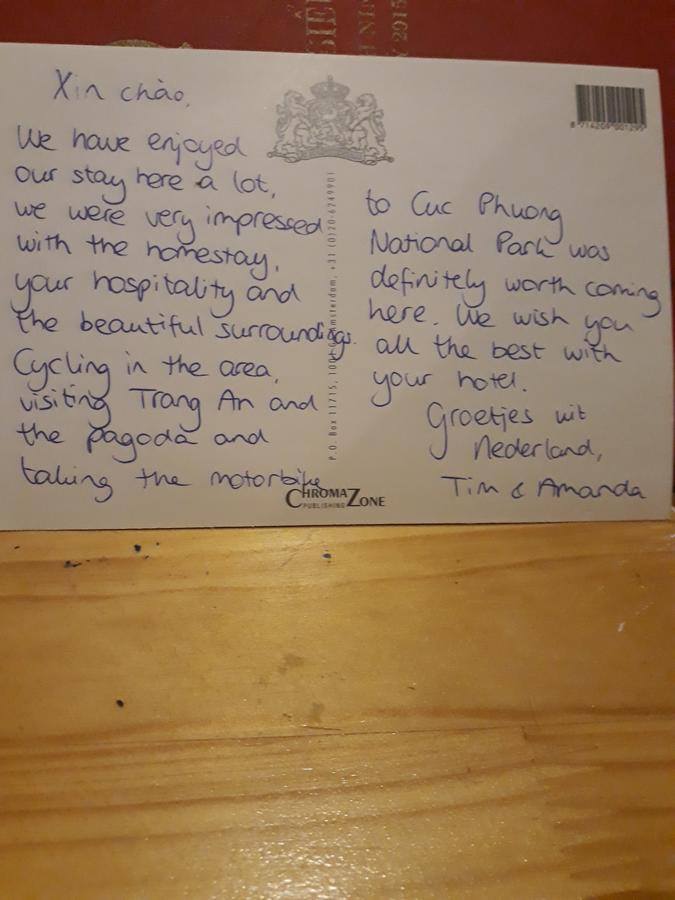 Xin chào,
We have enjoyed
our stay here a lot,
we were very impressed
with the homestay,
your hospitality and
the beautiful surroundings.
Cycling in the area,
visiting Trang An and
the pagoda and
taking the motorbike
to Cuc Phuong
National Park was
definitely worth coming
here. We wish you
all the best with
your hotel.
Groetjes uit
Nederland,
Tim & Amanda
CHROMAZONE
PUBLISHING
P.O. Box 11715, 1001 Amsterdam, +31 (0)20-6249901
8 714209 001295
2015